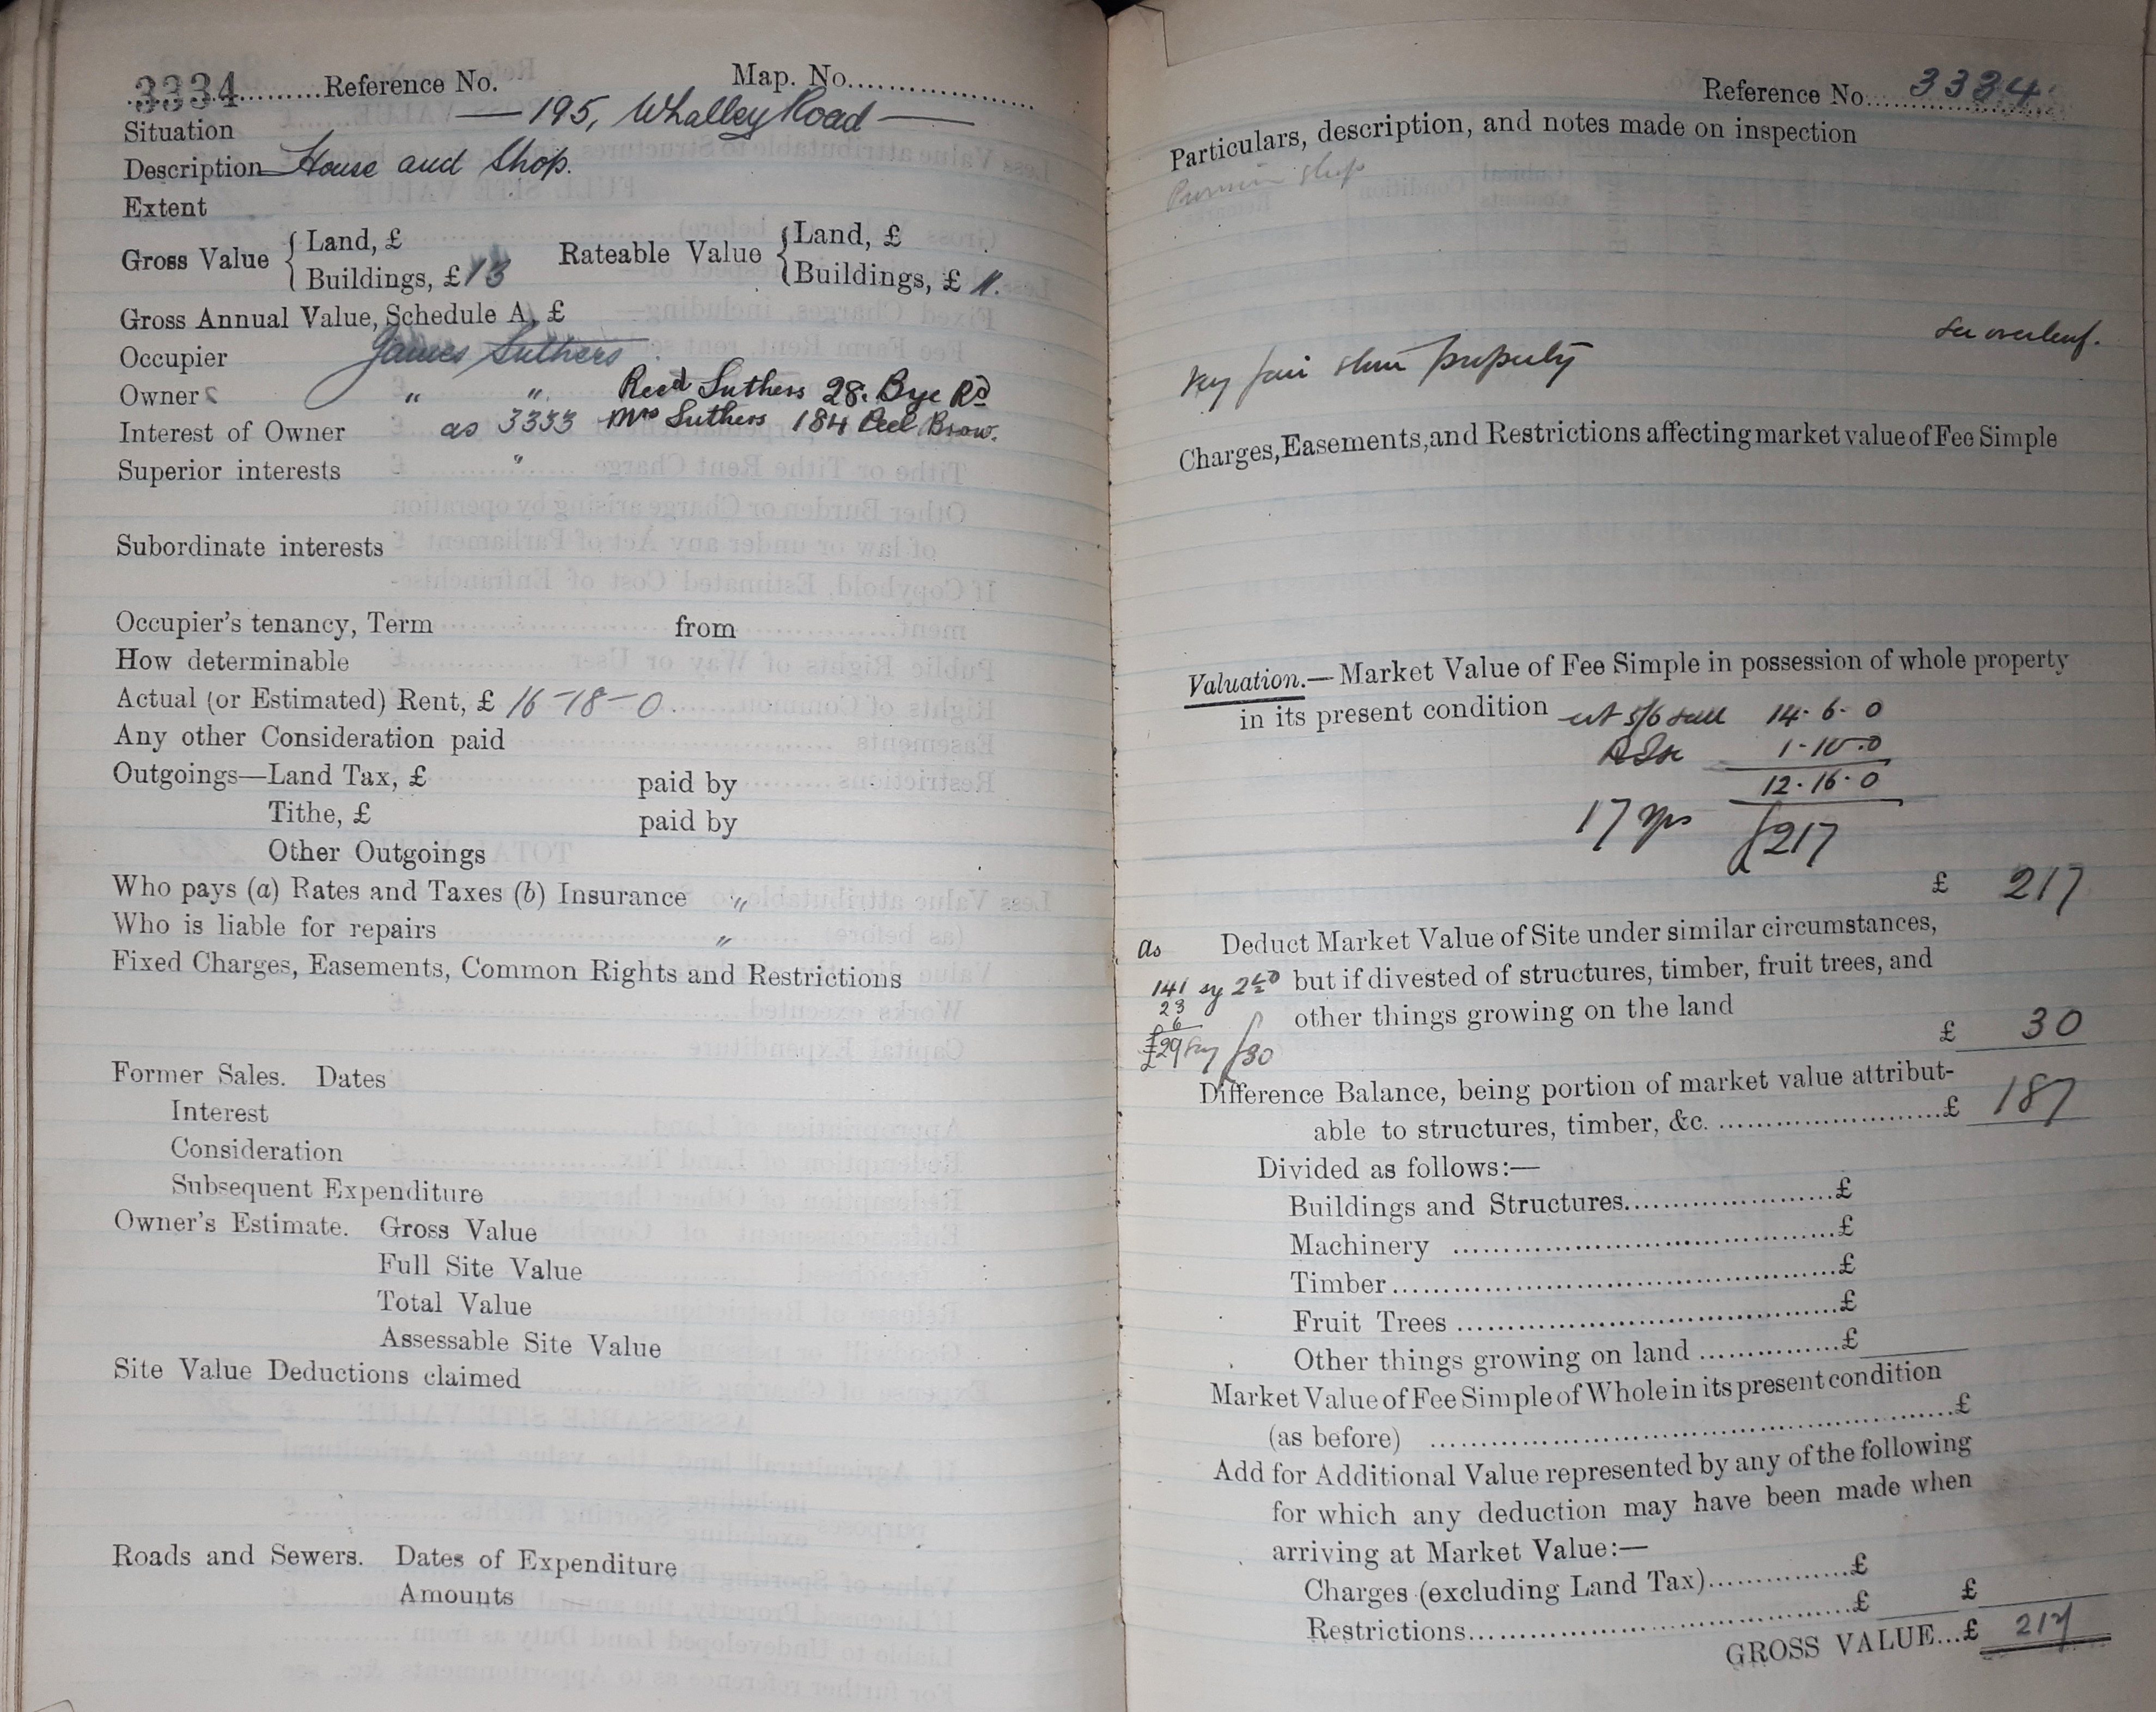 3334 Reference No. Map. No.
Situation — 195, Whalley Road —
Description House and Shop.
Extent
Gross Value { Land, £ Rateable Value { Land, £
Buildings, £ 13 Buildings, £ 11.
Gross Annual Value, Schedule A, £
Occupier James Suthers
Owner s " " Suthers 28. Bye Rd
Interest of Owner as 3333 Mrs Suthers 184 Peel Brow.
Superior interests "
Subordinate interests
Occupier's tenancy, Term from
How determinable
Actual (or Estimated) Rent, £ 16-18-0.
Any other Consideration paid
Outgoings—Land Tax, £ paid by
Tithe, £ paid by
Other Outgoings
Who pays (a) Rates and Taxes (b) Insurance "
Who is liable for repairs "
Fixed Charges, Easements, Common Rights and Restrictions
Former Sales. Dates
Interest
Consideration
Subsequent Expenditure
Owner's Estimate. Gross Value
Full Site Value
Total Value
Assessable Site Value
Site Value Deductions claimed
Roads and Sewers. Dates of Expenditure
Amounts
Reference No. 3334
Particulars, description, and notes made on inspection
shop
see overleaf.
fair property
Charges, Easements, and Restrictions affecting market value of Fee Simple
Valuation.— Market Value of Fee Simple in possession of whole property
in its present condition at 5/6 14-6-0
1-10-0
12-16-0
17 yps £217
£ 217
as Deduct Market Value of Site under similar circumstances,
141 sy but if divested of structures, timber, fruit trees, and
23
6 other things growing on the land
£29 say £30 £ 30
Difference Balance, being portion of market value attribut-
able to structures, timber, &c. £ 187
Divided as follows:—
Buildings and Structures £
Machinery £
Timber £
Fruit Trees £
Other things growing on land £
Market Value of Fee Simple of Whole in its present condition
(as before) £
Add for Additional Value represented by any of the following
for which any deduction may have been made when
arriving at Market Value:—
Charges (excluding Land Tax) £
Restrictions £ £
GROSS VALUE...£ 217